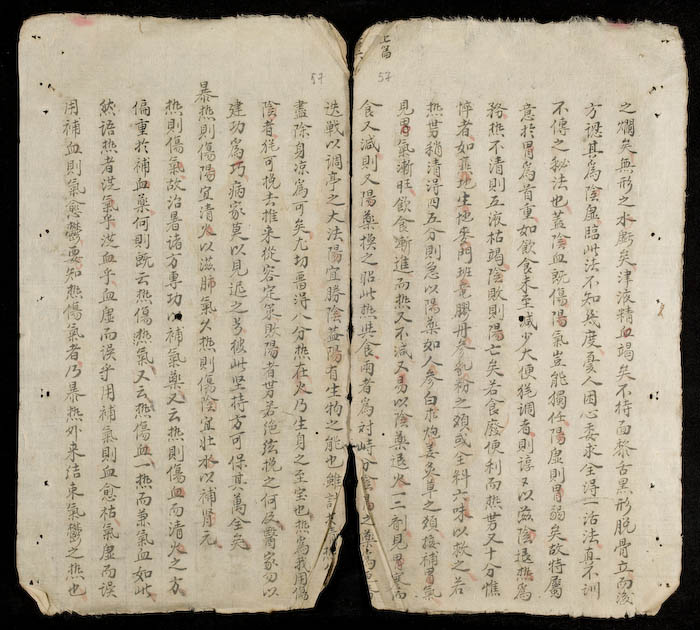 上篇
57
之爛矣無形之水斷矣津液精血竭矣不待面黎舌黑形脫骨立而後
方提其爲陰虛臨此法不知幾度憂人因心委求全得一活法真不訓
不傳之秘法也蓋陰血既傷陽氣豈能獨任陽虛則胃弱矣故特屬
意於胃爲首重如飲食未至減少大便猶調者則諄又以滋陰退熱爲
務熱不清則五液枯竭陰敗則陽亡矣若食廢便利而熱勢又十分憔
悴者如舊地生地麥門班竜膠丹參乳粉之類或全料六味以救之若
熱勢稍清得四五分則急以陽藥如人參白朮炮姜炙草之類接補胃氣
見胃氣漸旺飲食漸進而熱又不減又易以陰藥退火一二劑見胃寒而
食又減則又陽藥換之照此熱與食兩者爲對峙分陰陽之藥
57
迭戰以調亭之大法陽宜勝陰蓋陽有生物之能也雖
盡除身凉爲可矣尤切罾得八分熱在火乃生身之至宝也熱爲我用傷
陰者猶可挽去推来從容定策敗陽者勢若絕絃挽之何及醫家勿以
建功爲巧病家莫以見遲之芳彼此堅持方可保其萬全矣
暴熱則傷陽宜清火以滋肺氣久熱則傷陰宜壯水以補腎元
熱則傷氣故治暑諸方專功以補氣藥又云熱則傷血而清火之方
偏重於補血藥何則既云熱傷熱氣又云熱傷血一熱而兼氣血如此
然語熱者從氣乎從血乎血虛而誤乎用補氣則血愈枯氣虛而誤
用補血則氣愈鬱要知熱傷氣者乃暴熱外来結束氣鬱之熱也